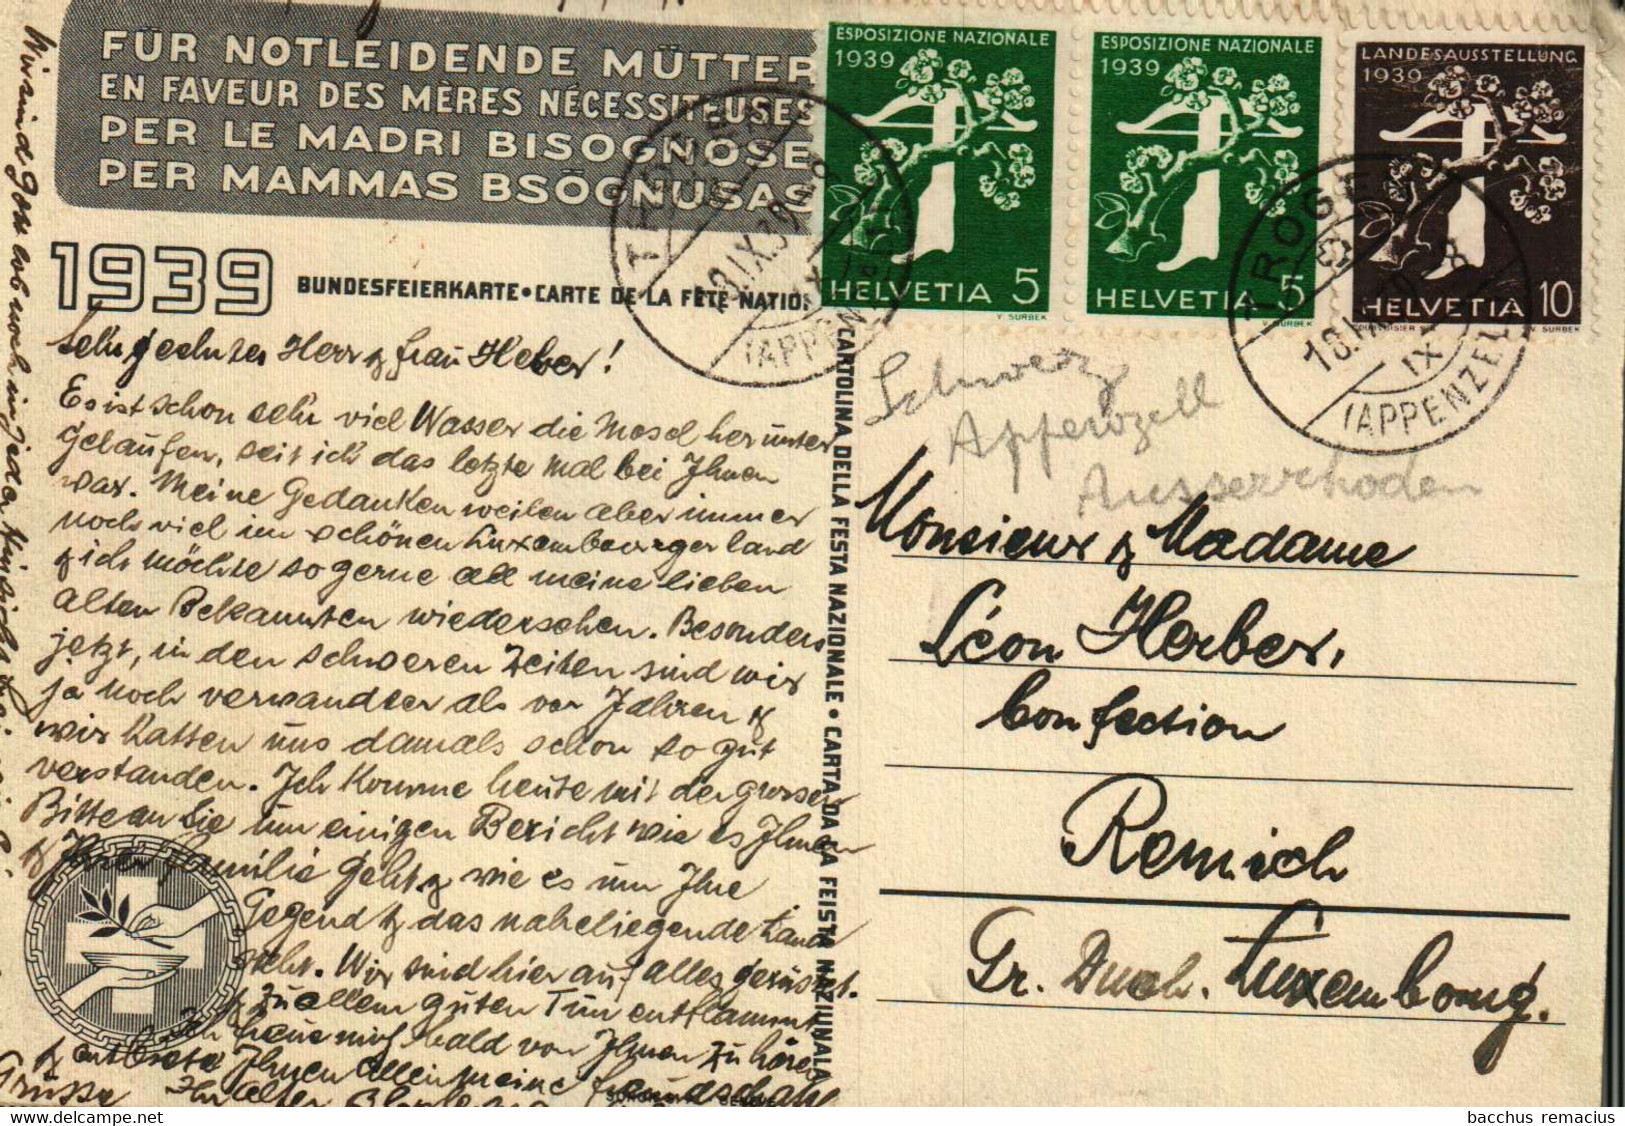 FÜR NOTLEIDENDE MÜTTER
EN FAVEUR DES MÈRES NÉCESSITEUSES
PER LE MADRI BISOGNOSE
PER MAMMAS BSÖGNUSAS
1939
BUNDESFEIERKARTE • CARTE DE LA FÊTE NATIO
CARTOLINA DELLA FESTA NAZIONALE • CARTA DA LA FEISTA NAZIUNALA
ESPOSIZIONE NAZIONALE
1939
HELVETIA 5
V. SURBEK
ESPOSIZIONE NAZIONALE
1939
HELVETIA 5
V. SURBEK
LANDESAUSSTELLUNG
1939
HELVETIA 10
V. SURBEK
TROGE
18.IX.39
(APPENZELL
Sehr geehrter Herr & Frau Herber!
Es ist schon sehr viel Wasser die Mosel herunter
gelaufen, seit ich das letzte mal bei Ihnen
war. Meine Gedanken weilen aber immer
noch viel im schönen Luxembourgerland
& ich möchte so gerne all meine lieben
alten Bekannten wiedersehen. Besonders
jetzt, in den schweren Zeiten sind wir
ja noch verwandter als vor Jahren &
wir hatten uns damals schon so gut
verstanden. Ich komme heute mit der grossen
Bitte an Sie um einigen Bericht wie es Ihnen
& Ihrer Familie geht & wie es um Ihre
Gegend & das naheliegende Land
steht. Wir sind hier auf alles gerüstet
& zu allem guten Tun entflammt
Ich freue mich bald von Ihnen zu hören
& entbiete Ihnen allen meine freundschaftl
Grüsse Ihr alter
Wir sind Gott lob noch in jeder Hinsicht
Schweiz
Appenzell
Ausserrhoden
Monsieur & Madame
Léon Herber,
Confection
Remich
Gr. Duch. Luxembourg.
bacchus remacius